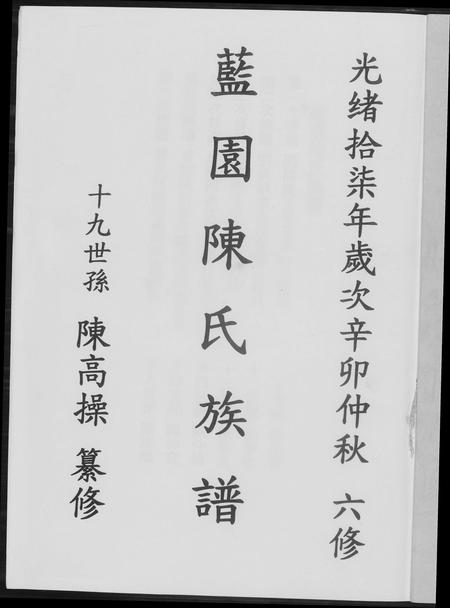 光绪拾柒年歲次辛卯仲秋 六修
藍園陳氏族譜
十九世孫 陳高操 纂修